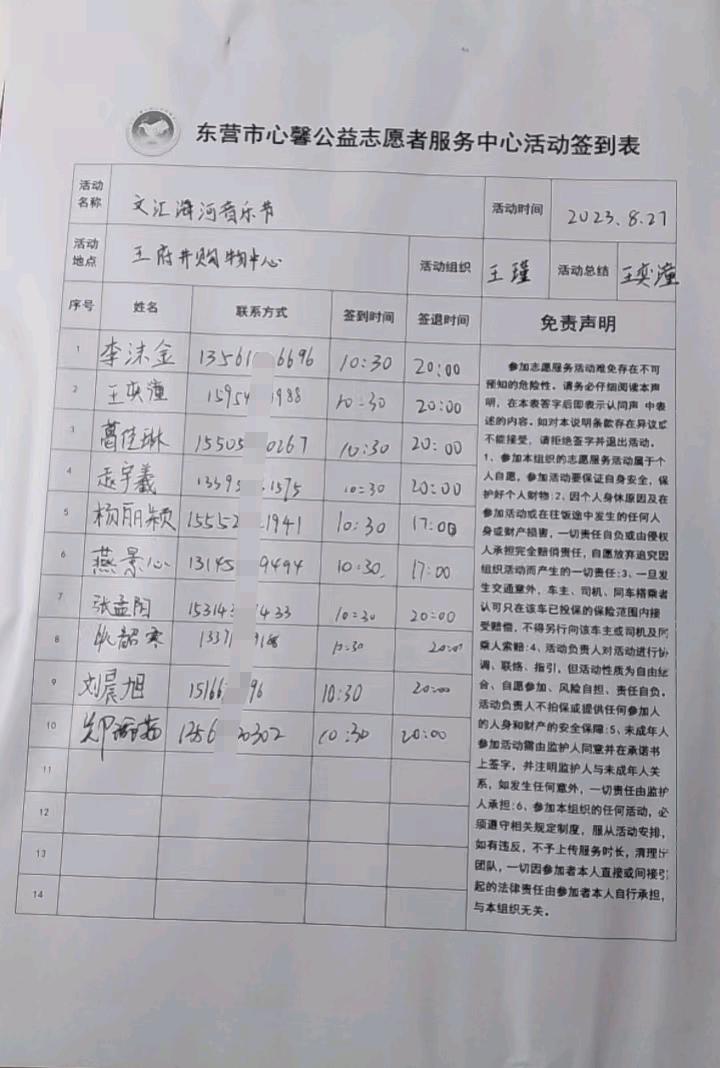 东营市心馨公益志愿者服务中心活动签到表
活动名称 文汇 河音乐节 活动时间 2023.8.27
活动地点 王府井购物中心 活动组织 王瑾 活动总结 王奕潼
序号 姓名 联系方式 签到时间 签退时间 免责声明
1 李沫金 13561 6696 10:30 20:00
2 王奕潼 15954 1988 10:30 20:00
3 葛佳琳 15505 0267 10:30 20:00
4 孟宇羲 1339 1575 10:30 20:00
5 杨丽颖 15552 1941 10:30 17:00
6 燕景心 13145 9494 10:30 17:00
7 张孟阳 15314 433 10:30 20:00
8 韶寒 1337 10:30 20:00
9 刘晨旭 15166 96 10:30 20:00
10 郑 1356 0302 10:30 20:00
11
12
13
14
参加志愿服务活动难免存在不可
预知的危险性。请务必仔细阅读本声
明，在本表答字后即表示认同声 中表
述的内容。如对本说明条款存在异议或
不能接受，请拒绝签字并退出活动。
1、参加本组织的志愿服务活动属于个
人自愿，参加活动要保证自身安全，保
护好个人财物;2、因个人身体原因及在
参加活动或在往饭途中发生的任何人
身或财产损害，一切责任自负或由侵权
人承担完全赔偿责任，自愿放弃追究因
组织活动而产生的一切责任;3、一旦发
生交通意外，车主、司机、同车搭乘者
认可只在该车已投保的保险范围内接
受赔偿，不得另行向该车主或司机及同
乘人索赔;4、活动负责人对活动进行协
调、联络、指引，但活动性质为自由组
合、自愿参加、风险自担、责任自负。
活动负责人不拍保或提供任何参加人
的人身和财产的安全保障;5、未成年人
参加活动需由监护人同意并在承诺书
上签字，并注明监护人与未成年人关
系，如发生任何意外，一切责任由监护
人承担;6、参加本组织的任何活动，必
须遵守相关规定制度，服从活动安排，
如有违反，不予上传服务时长，清理出
团队，一切因参加者本人直接或间接引
起的法律责任由参加者本人自行承担，
与本组织无关。